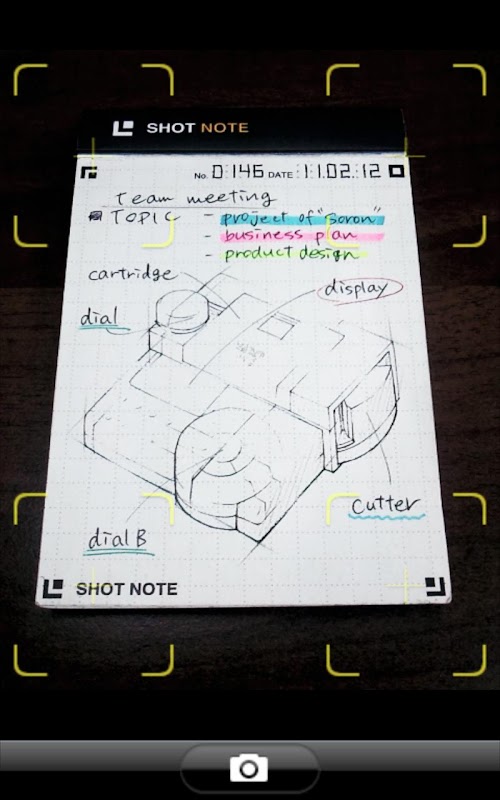 SHOT NOTE
No. 0146 DATE 11.02.12
Team meeting
TOPIC - project of "Boron"
- business plan
- product design
cartridge
display
dial
cutter
dial B
SHOT NOTE